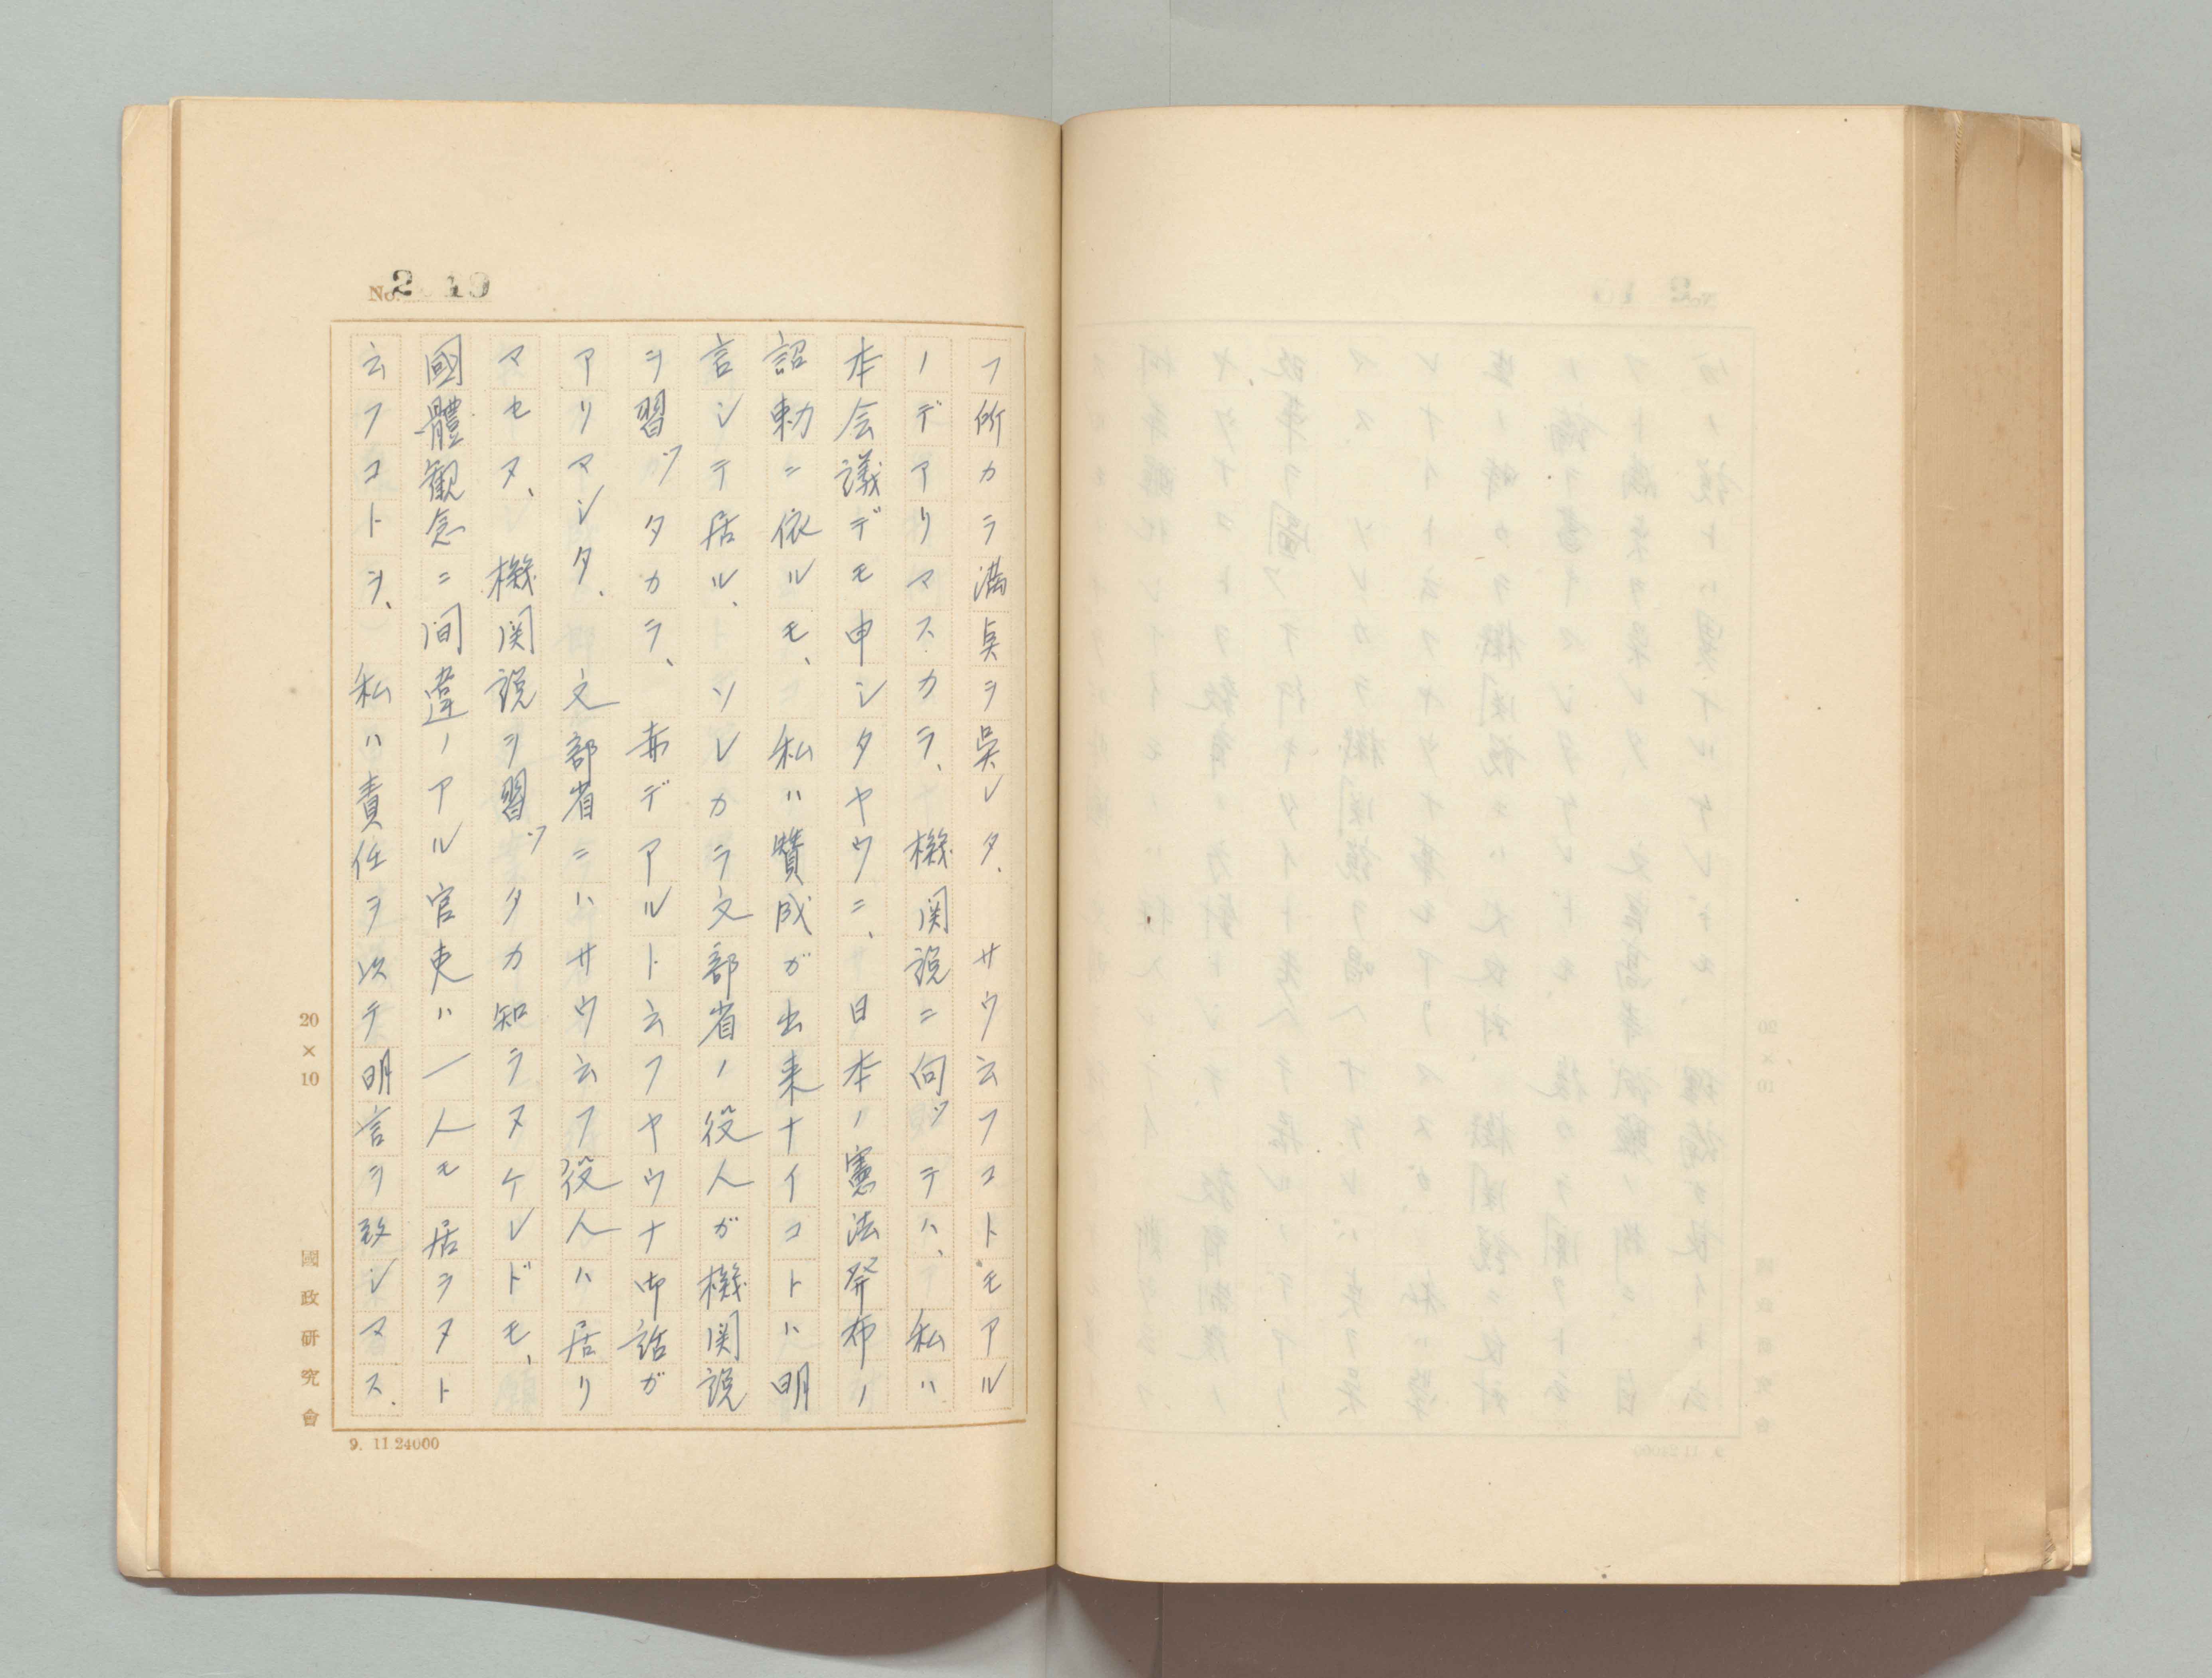 No. 2 19
フ所カラ満点ヲ呉レタ、サウ云フコトモアル
ノデアリマスカラ、機関説ニ向ツテハ、私ハ
本会議デモ申シタヤウニ、日本ノ憲法発布ノ
詔勅ニ依ルモ、私ハ賛成ガ出来ナイコトハ明
言シテ居ル、ソレカラ文部省ノ役人ガ機関説
ヲ習ツタカラ、赤デアルト云フヤウナ御話ガ
アリマシタ、文部省ニハサウ云フ役人ハ居リ
マセヌ、機関説ヲ習ツタカ知ラヌケレドモ、
國體観念ニ間違ノアル官吏ハ一人モ居ラヌト
云フコトヲ、私ハ責任ヲ以テ明言ヲ致シマス、
20×10
國政研究會
9. 11 24000